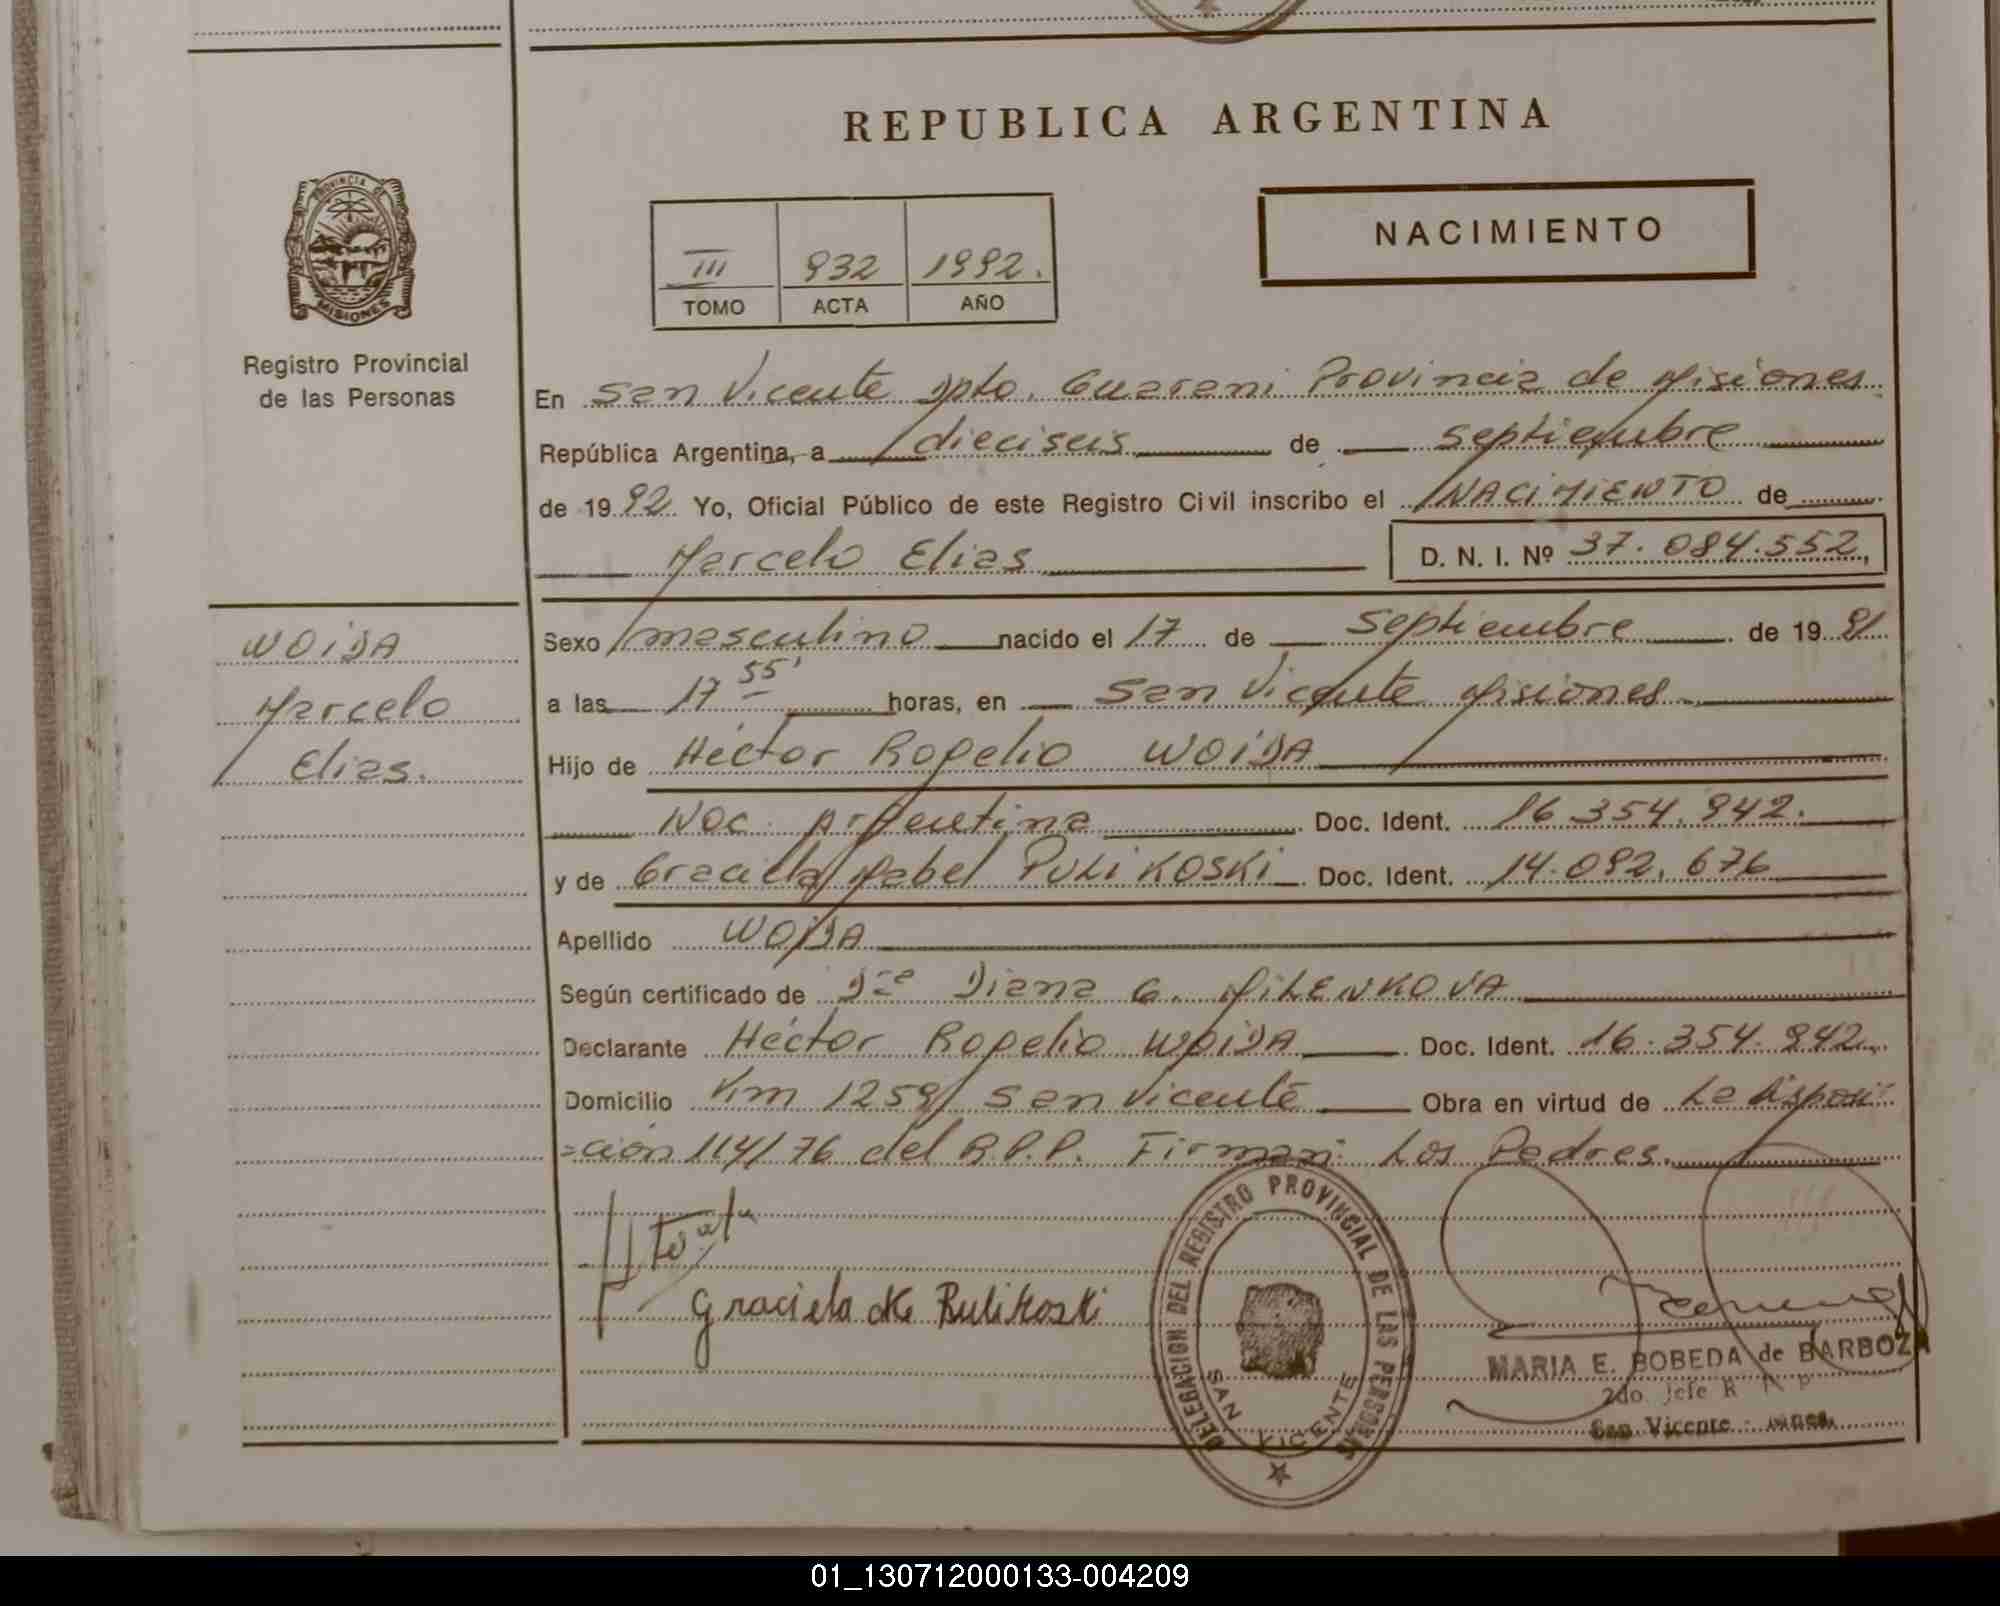 REPUBLICA ARGENTINA
NACIMIENTO
III 932 1992.
TOMO ACTA AÑO
PROVINCIA DE
MISIONES
Registro Provincial
de las Personas
En San Vicente Dpto. Guarani Provincia de Misiones
República Argentina, a dieciseis de septiembre
de 1992 Yo, Oficial Público de este Registro Civil inscribo el NACIMIENTO de
Marcelo Elias D. N. I. Nº 37.084.552,
WOIDA
Marcelo
Elias.
Sexo masculino nacido el 17 de septiembre de 1991
a las 17 55' horas, en San Vicente Misiones
Hijo de Héctor Rogelio WOIDA
Nac. Argentina Doc. Ident. 16.354.942.
y de Graciela Mabel PULIKOSKI Doc. Ident. 14.092.676
Apellido WOIDA
Según certificado de Dra Diana G. MILENKOVA
Declarante Héctor Rogelio WOIDA Doc. Ident. 16.354.942
Domicilio Km 1259 San Vicente Obra en virtud de La disposi
=ción 114/76 del R.P.P. Firman: Los Padres.
Graciela M. Pulikoski
DELEGACION DEL REGISTRO PROVINCIAL DE LAS PERSONAS
SAN VICENTE
MARIA E. BOBEDA de BARBOZA
2do. Jefe R. N. P
San Vicente - Mnes.
01_130712000133-004209